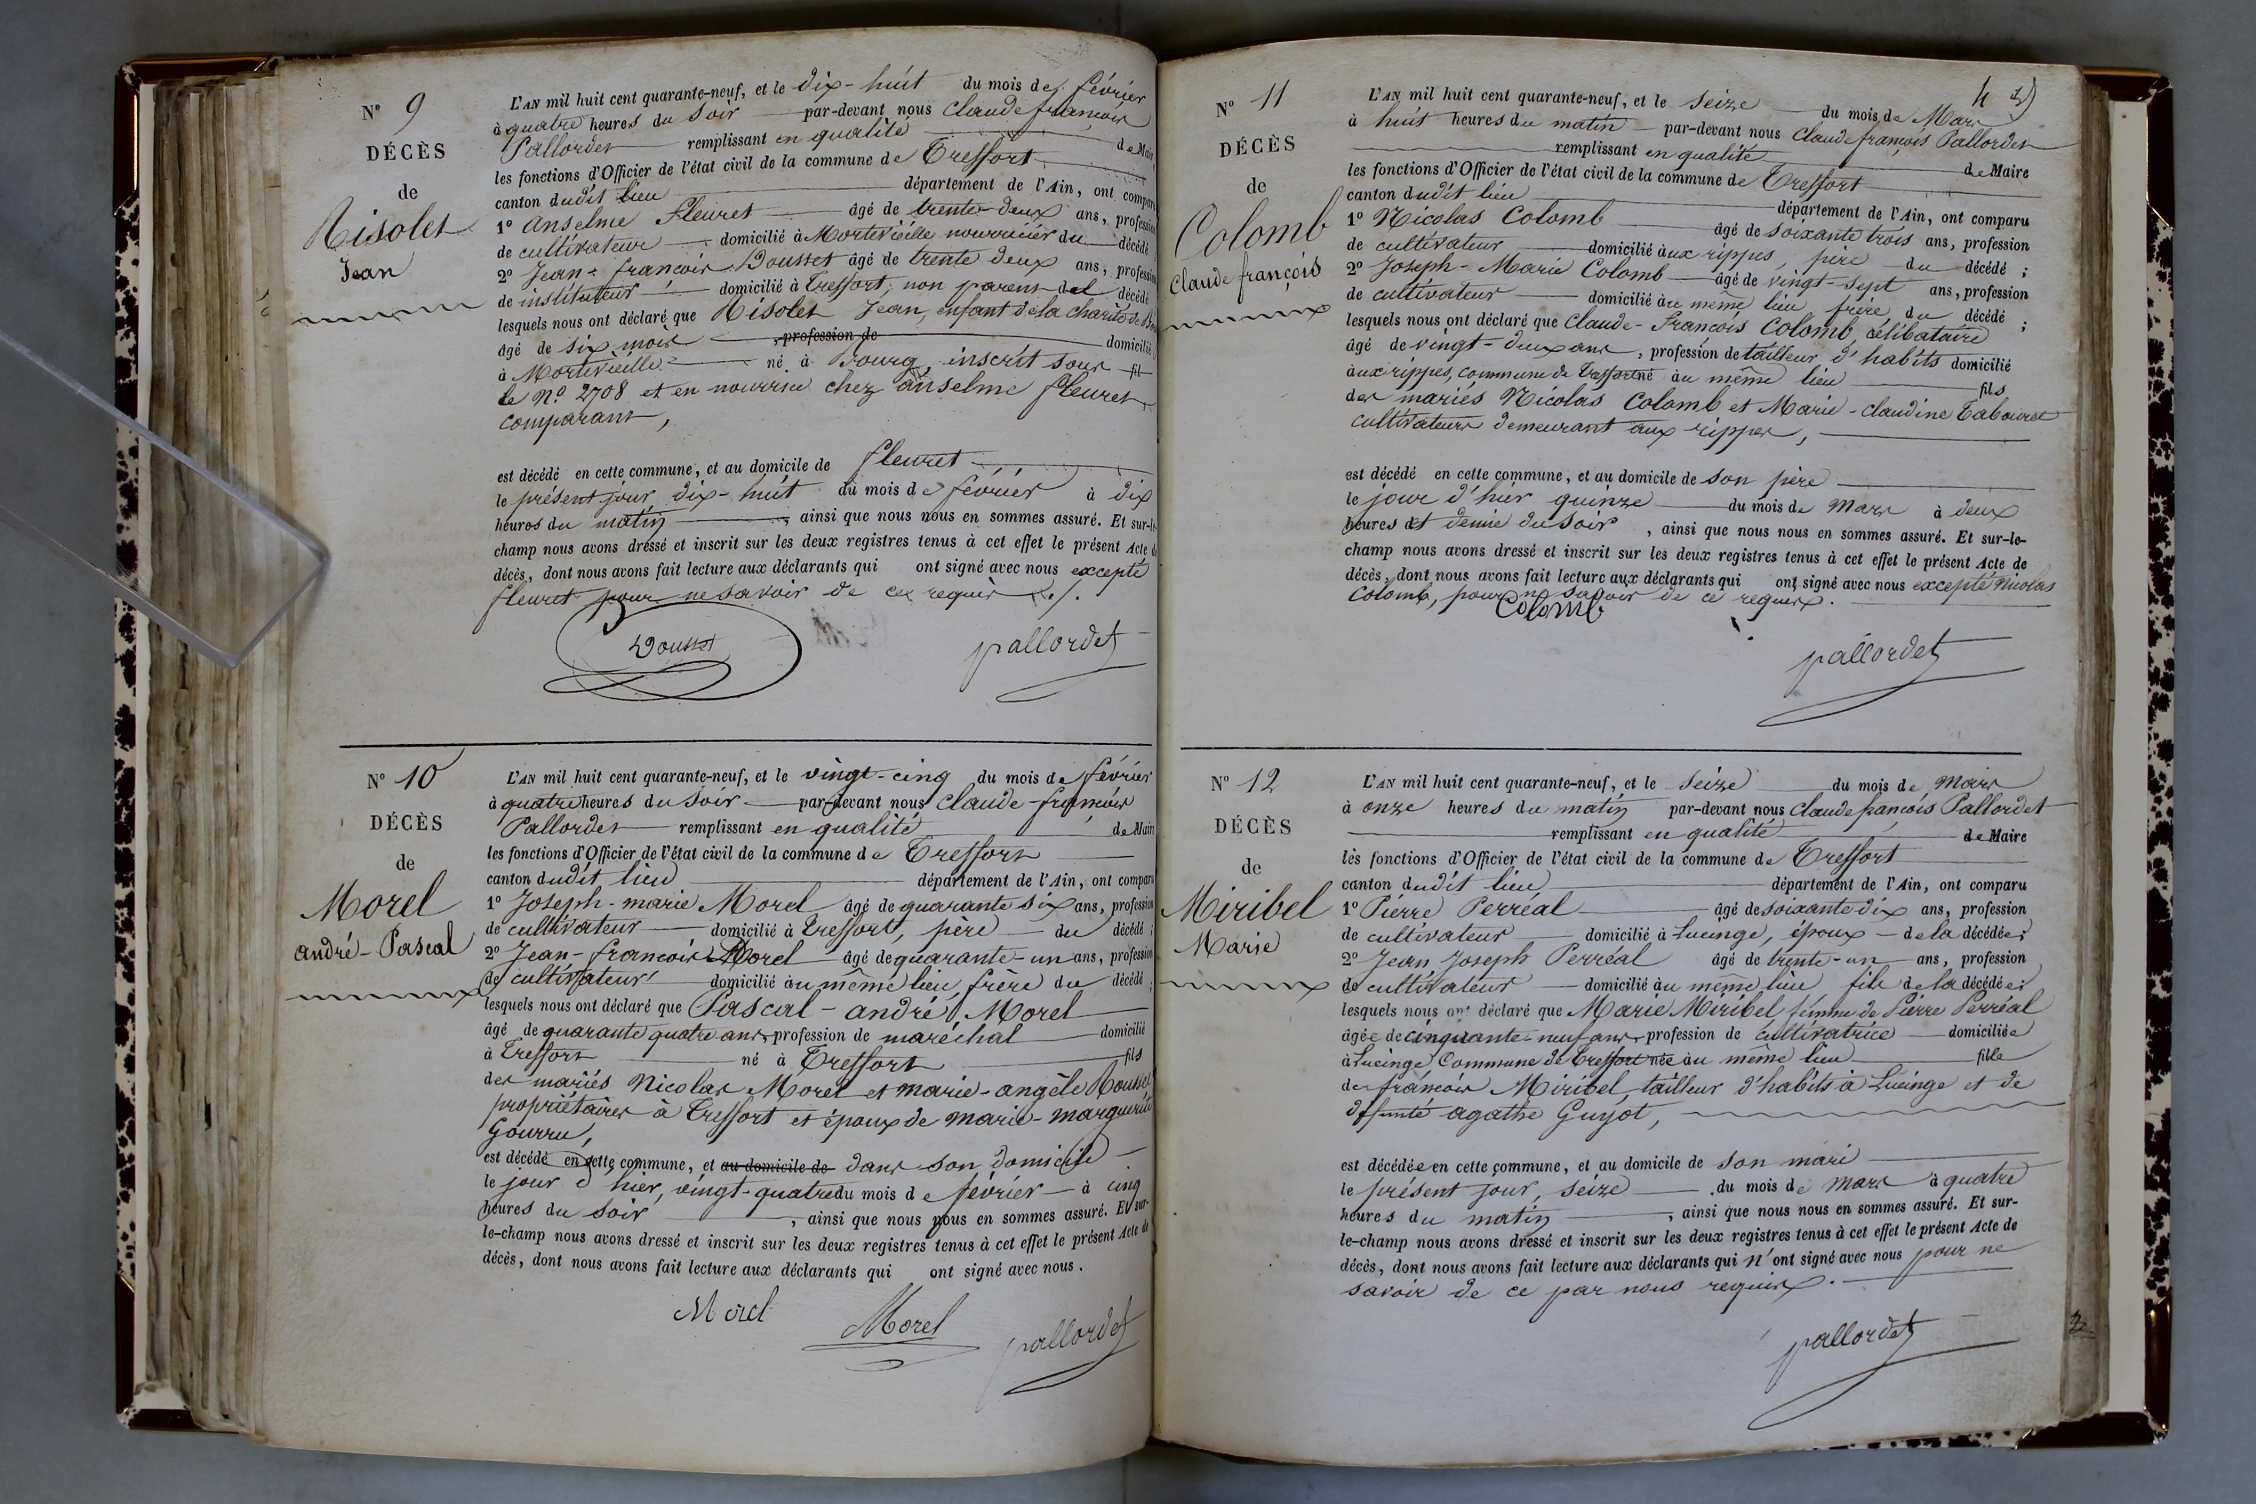 N° 9
DÉCÈS
de
Risolet
Jean
L'AN mil huit cent quarante-neuf, et le dix-huit du mois de février
à quatre heures du soir par-devant nous Claude françois
Pallordet remplissant en qualité de Maire
les fonctions d'Officier de l'état civil de la commune de Treffort
canton dudit lieu département de l'Ain, ont comparu
1° Anselme fleuret âgé de trente-deux ans, profession
de cultivateur domicilié à Mortevieille nourricier du décédé
2° Jean-françois Dousset âgé de trente deux ans, profession
de instituteur domicilié à Treffort, non parent del décédé
lesquels nous ont déclaré que Risolet Jean, enfant de la charité de
âgé de six mois profession de domicilié
à Mortevieille né à Bourg, inscrit sous fil
le N° 2708 et en nourrice chez anselme fleuret
comparant,
est décédé en cette commune, et au domicile de fleuret
le présent jour dix-huit du mois de février à dix
heures du matin, ainsi que nous nous en sommes assuré. Et sur-le-
champ nous avons dressé et inscrit sur les deux registres tenus à cet effet le présent Acte de
décès, dont nous avons fait lecture aux déclarants qui ont signé avec nous excepté
fleuret pour ne savoir de ce requis ./.
Dousset pallordet
N° 10
DÉCÈS
de
Morel
andré-Pascal
L'AN mil huit cent quarante-neuf, et le vingt-cinq du mois de février
à quatre heures du soir par-devant nous Claude-françois
Pallordet remplissant en qualité de Maire
les fonctions d'Officier de l'état civil de la commune de Treffort
canton dudit lieu département de l'Ain, ont comparu
1° Joseph-marie Morel âgé de quarante six ans, profession
de cultivateur domicilié à Treffort, père du décédé ;
2° Jean-françois Morel âgé de quarante-un ans, profession
de cultivateur domicilié au même lieu, frère du décédé ;
lesquels nous ont déclaré que Pascal-andré Morel
âgé de quarante quatre ans, profession de maréchal domicilié
à Treffort né à Treffort fils
des mariés Nicolas Morel et marie-angèle Rousset
propriétaires à Treffort et époux de marie-marguerite
Gourru,
est décédé en cette commune, et au domicile de dans son domicile
le jour d'hier, vingt-quatre du mois de février à cinq
heures du soir, ainsi que nous nous en sommes assuré. Et sur-
le-champ nous avons dressé et inscrit sur les deux registres tenus à cet effet le présent Acte de
décès, dont nous avons fait lecture aux déclarants qui ont signé avec nous.
Morel Morel pallordet
4
N° 11
DÉCÈS
de
Colomb
Claude françois
L'AN mil huit cent quarante-neuf, et le seize du mois de Mars
à huit heures du matin par-devant nous Claude françois Pallordet
remplissant en qualité de Maire
les fonctions d'Officier de l'état civil de la commune de Treffort
canton dudit lieu département de l'Ain, ont comparu
1° Nicolas Colomb âgé de soixante trois ans, profession
de cultivateur domicilié aux rippes, père du décédé ;
2° Joseph-Marie Colomb âgé de vingt-sept ans, profession
de cultivateur domicilié au même lieu frère du décédé ;
lesquels nous ont déclaré que Claude-François Colomb célibataire
âgé de vingt-deux ans, profession de tailleur d'habits domicilié
aux rippes, commune de Treffort né au même lieu fils
des mariés Nicolas Colomb et Marie-claudine Tabouret
cultivateurs demeurant aux rippes,
est décédé en cette commune, et au domicile de son père
le jour d'hier quinze du mois de Mars à deux
heures et demie du soir, ainsi que nous nous en sommes assuré. Et sur-le-
champ nous avons dressé et inscrit sur les deux registres tenus à cet effet le présent Acte de
décès, dont nous avons fait lecture aux déclarants qui ont signé avec nous excepté Nicolas
Colomb, pour ne savoir de ce requis.
Colomb
pallordet
N° 12
DÉCÈS
de
Miribel
Marie
L'AN mil huit cent quarante-neuf, et le seize du mois de Mars
à onze heures du matin par-devant nous Claude françois Pallordet
remplissant en qualité de Maire
les fonctions d'Officier de l'état civil de la commune de Treffort
canton dudit lieu département de l'Ain, ont comparu
1° Pierre Perréal âgé de soixante dix ans, profession
de cultivateur domicilié à Lucinge, époux de la décédée ;
2° Jean Joseph Perréal âgé de trente-un ans, profession
de cultivateur domicilié au même lieu fils de la décédée ;
lesquels nous ont déclaré que Marie Miribel femme de Pierre Perréal
âgée de cinquante-neuf ans, profession de cultivatrice domiciliée
à Lucinge, Commune de Treffort née au même lieu fille
de françois Miribel, tailleur d'habits à Lucinge et de
défunte agathe Guyot,
est décédée en cette commune, et au domicile de son mari
le présent jour, seize du mois de Mars à quatre
heures du matin, ainsi que nous nous en sommes assuré. Et sur-
le-champ nous avons dressé et inscrit sur les deux registres tenus à cet effet le présent Acte de
décès, dont nous avons fait lecture aux déclarants qui n'ont signé avec nous pour ne
savoir de ce par nous requis.
pallordet